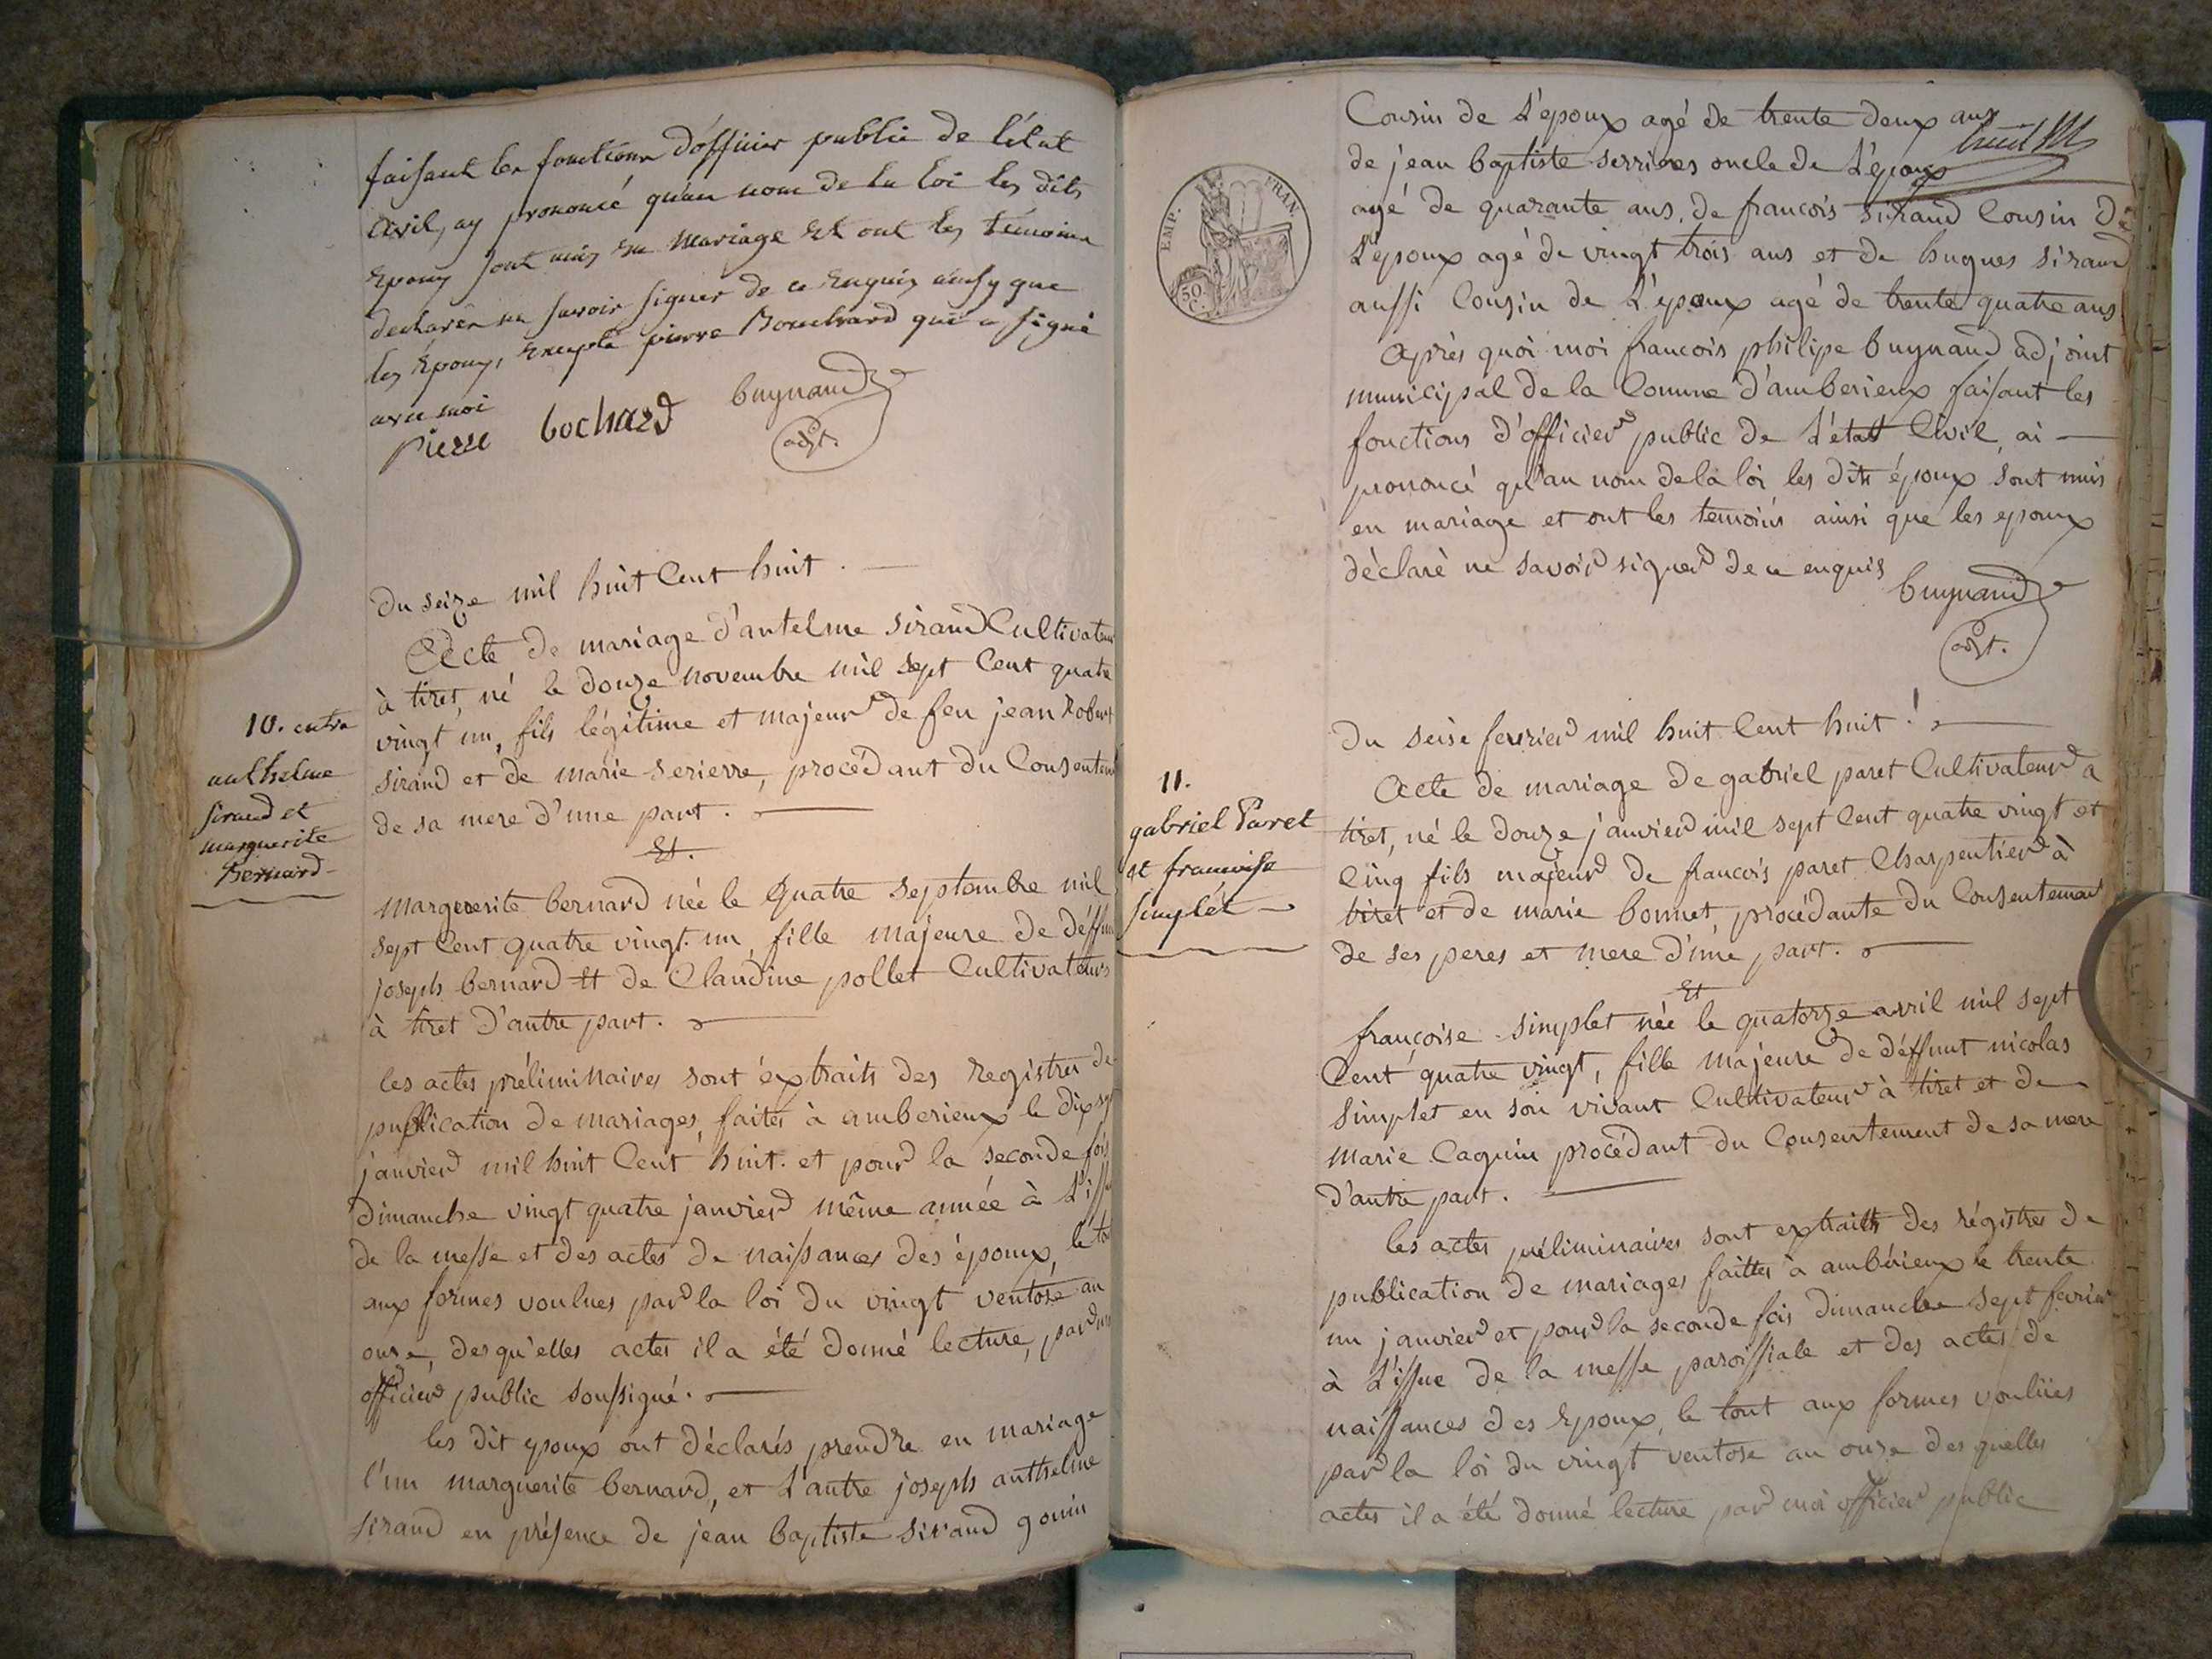 faisant les fonctions d'officier public de l'état
civil, ay prononcé qu'au nom de la loi les dits
Epoux sont unis en mariage Et ont les témoins
declarés ne savoir signer de ce Enquis ainsy que
les Epoux, Excepté pierre Bouchard qui a signé
avec moi
pierre bochard buynand
adjt.
du seize mil huit Cent huit.
10. entre
anthelme
sirand et
marguerite
Bernard
Acte de mariage d'antelme sirand Cultivateur
à tiret, né le douze novembre mil sept Cent quatre
vingt un, fils légitime et majeur de feu jean Robert
sirand et de marie serierre, procédant du Consentem
de sa mere d'une part.
Et.
marguerite bernard née le quatre septembre mil
sept Cent quatre vingt un, fille majeure de déffun
joseph bernard Et de Claudine pollet Cultivateurs
à tiret d'autre part.
les actes préliminaires sont éxtraits des Registres de
publication de mariages, faites à amberieux le dix sept
janvier mil huit Cent huit. et pour la seconde fois
dimanche vingt quatre janvier même année à L'issu
de la messe et des actes de naissances des époux, le tou
aux formes voulues par la loi du vingt ventose an
onze, desqu'elles actes il a été donné lecture, par moi
officier public soussigné.
les dit epoux ont déclarés prendre en mariage
l'un marguerite bernard, et L'autre joseph anthelme
sirand en présence de jean baptiste sirand gonin
EMP. FRAN.
50. C.
Cousin de L'époux agé de trente deux ans
de jean baptiste serrieres oncle de L'époux
agé de quarante ans, de francois sirand Cousin de
L'époux agé de vingt trois ans et de hugues sirand
aussi Cousin de L'époux agé de trente quatre ans
Après quoi moi francois philipe buynand adjoint
municipal de la Comune d'amberieux faisant les
fonctions d'officier public de L'état Civil, ai
prononcé qu'au nom de la loi les dits époux sont unis
en mariage et ont les temoins ainsi que les epoux
déclaré ne savoir signer de ce enquis
buynand
adjt.
du seise fevrier mil huit Cent huit.
11.
gabriel Paret
et francoise
simplet
Acte de mariage de gabriel paret Cultivateur a
tiret, né le douze janvier mil sept Cent quatre vingt et
Cinq fils majeur de francois paret Charpentier à
tiret et de marie bonnet, procédante du Consentement
de ses peres et mere d'une part.
Et
françoise simplet née le quatorze avril mil sept
Cent quatre vingt, fille majeure de déffunt nicolas
simplet en son vivant Cultivateur à tiret et de
marie Caguin procédant du Consentement de sa mere
d'autre part.
les actes préliminaires sont extraits des régistres de
publication de mariages faittes à ambérieux le trente
un janvier et pour la seconde fois dimanche sept fevrier
à L'issue de la messe paroissiale et des actes de
naissances des Epoux, le tout aux formes voulües
par la loi du vingt ventose an onze desquelles
actes il a été donné lecture par moi officier public